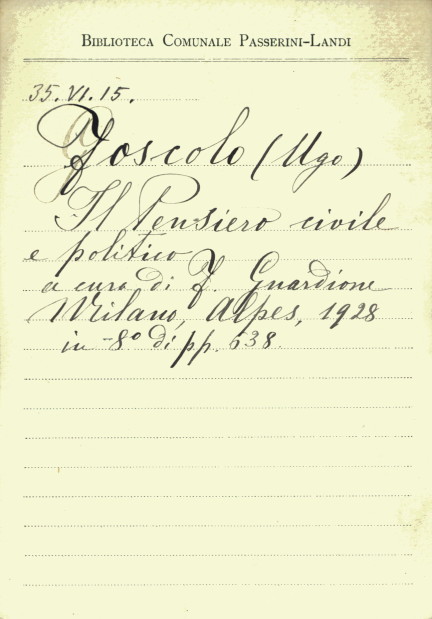 BIBLIOTECA COMUNALE PASSERINI-LANDI
35.VI.15.
Foscolo (Ugo)
Il Pensiero civile
e politico
a cura di F. Guardione
Milano, Alpes, 1928
in-8° di pp. 638.